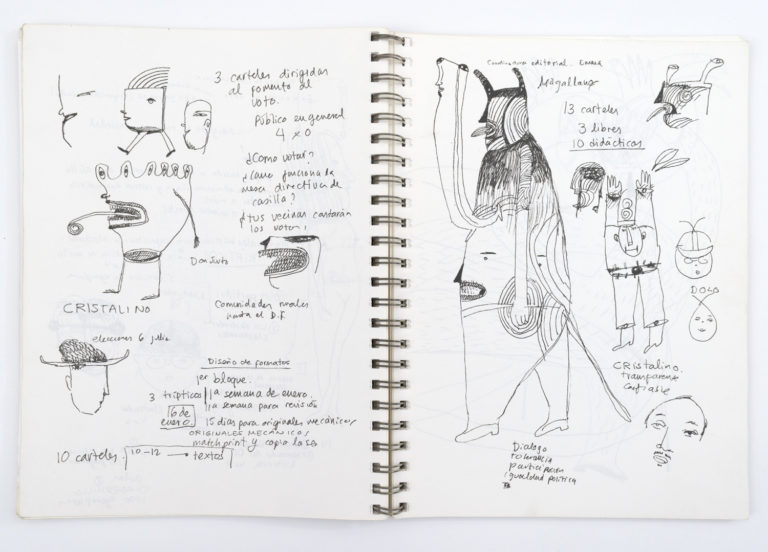 3 carteles dirigidas
al fomento al
voto.
Público en general
4 x 0
¿Como votar?
funciona la
mesa directiva de
casilla?
¿tus vecinos contarán
los votos?
CRISTALINO
Comunidades rurales
hasta el D.F.
elecciones 6 julio
Diseño de formatos
1er bloque.
3 trípticos 1a semana de enero.
1a semana para revisión
16 de
enero
15 dias para originales mecánicos
ORIGINALES MECANICOS,
matchprint y copia laser
10 carteles. 10-12 → textos
editorial.
Magallanes
13 carteles
3 libres
10 didácticos
DOLO
CRistalino,
transparente
confiable
Dialogo
tolerancia
participación
igualdad política